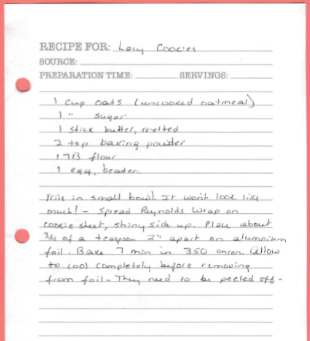 RECIPE FOR: Lacy Cookies
SOURCE:
PREPARATION TIME: SERVINGS:
1 cup oats (uncooked oatmeal)
1 " sugar
1 stick butter, melted
2 tsp baking powder
1 TB flour
1 egg, beaten
Mix in small bowl. It won't look like
much! - Spread Reynolds Wrap on
cookie sheet, shiny side up. Place about
3/4 of a teaspoon 2" apart on aluminum
foil. Bake 7 min in 350 oven. Allow
to cool completely before removing
from foil - They need to be peeled off -